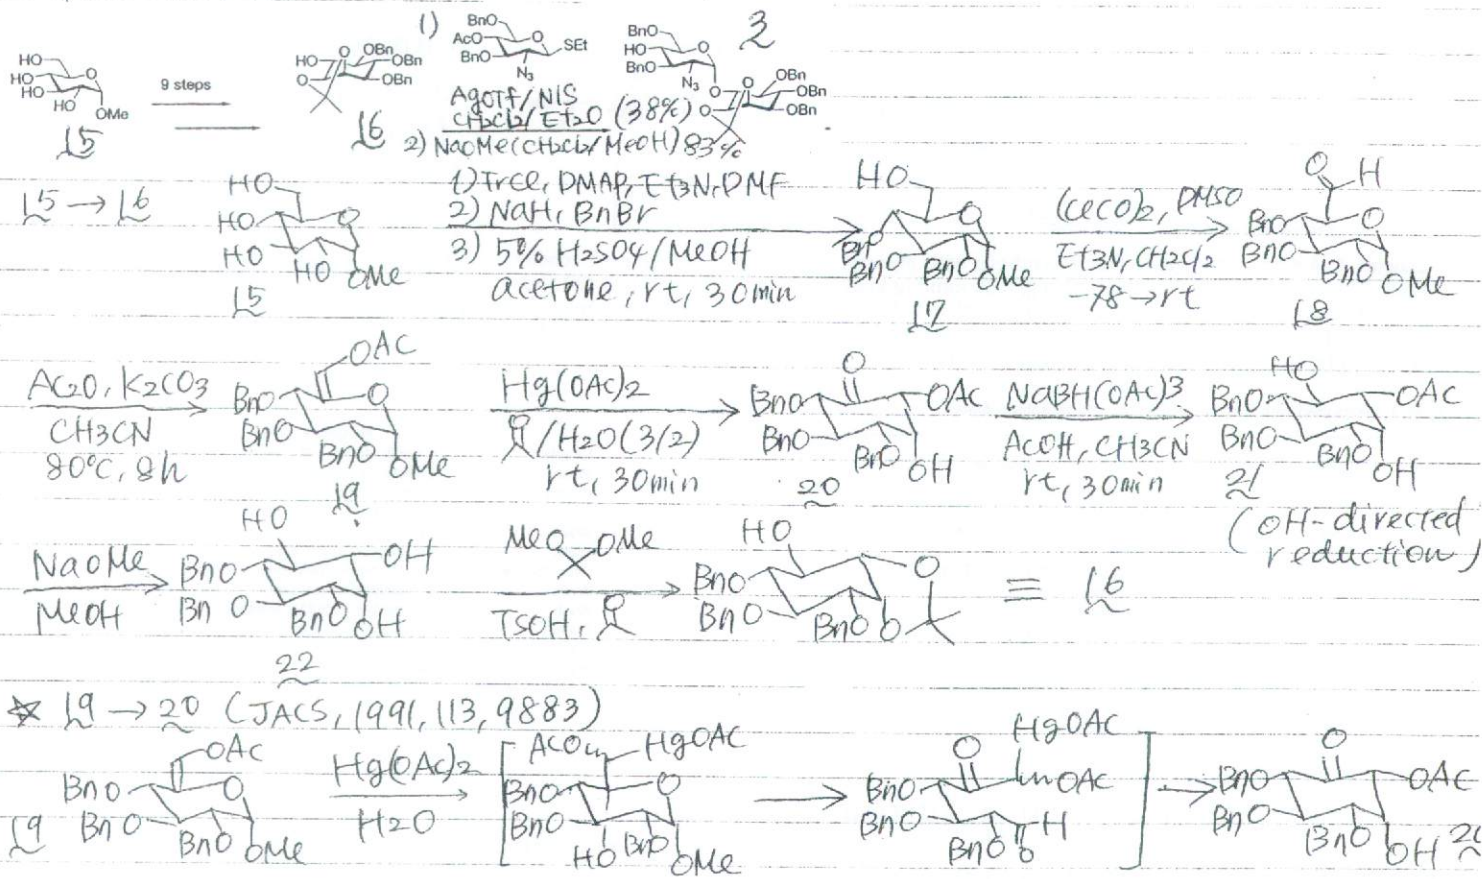 1)
BnO
AcO
BnO
O
SEt
N3
BnO
HO
BnO
O
N3
3
HO
HO
HO
HO
O
OMe
15
9 steps
HO
O
O
OBn
OBn
OBn
16
AgOTf/NIS
CH2Cl2/Et2O (38%)
2) NaOMe(CH2Cl2/MeOH) 83%
O
O
O
OBn
OBn
OBn
15 → 16
HO
HO
HO
HO
O
OMe
15
1) TrCl, DMAP, Et3N, DMF
2) NaH, BnBr
3) 5% H2SO4/MeOH
acetone, rt, 30min
HO
BnO
BnO
BnO
O
OMe
17
(COCl)2, DMSO
Et3N, CH2Cl2
-78→rt
O
H
BnO
BnO
BnO
O
OMe
18
Ac2O, K2CO3
CH3CN
80°C, 8h
OAc
BnO
BnO
BnO
O
OMe
19
Hg(OAc)2
/H2O (3/2)
rt, 30min
O
BnO
BnO
BnO
OAc
OH
20
NaBH(OAc)3
AcOH, CH3CN
rt, 30min
HO
BnO
BnO
BnO
OAc
OH
21
(OH-directed
reduction)
NaOMe
MeOH
HO
BnO
BnO
BnO
OH
OH
22
MeO OMe
TsOH,
HO
BnO
BnO
BnO
O
O
≡ 16
☆ 19 → 20 (JACS, 1991, 113, 9883)
OAc
BnO
BnO
BnO
O
OMe
19
Hg(OAc)2
H2O
AcO
HgOAc
BnO
BnO
HO
BnO
O
OMe
O
HgOAc
OAc
BnO
BnO
BnO
H
O
O
BnO
BnO
BnO
OAc
OH